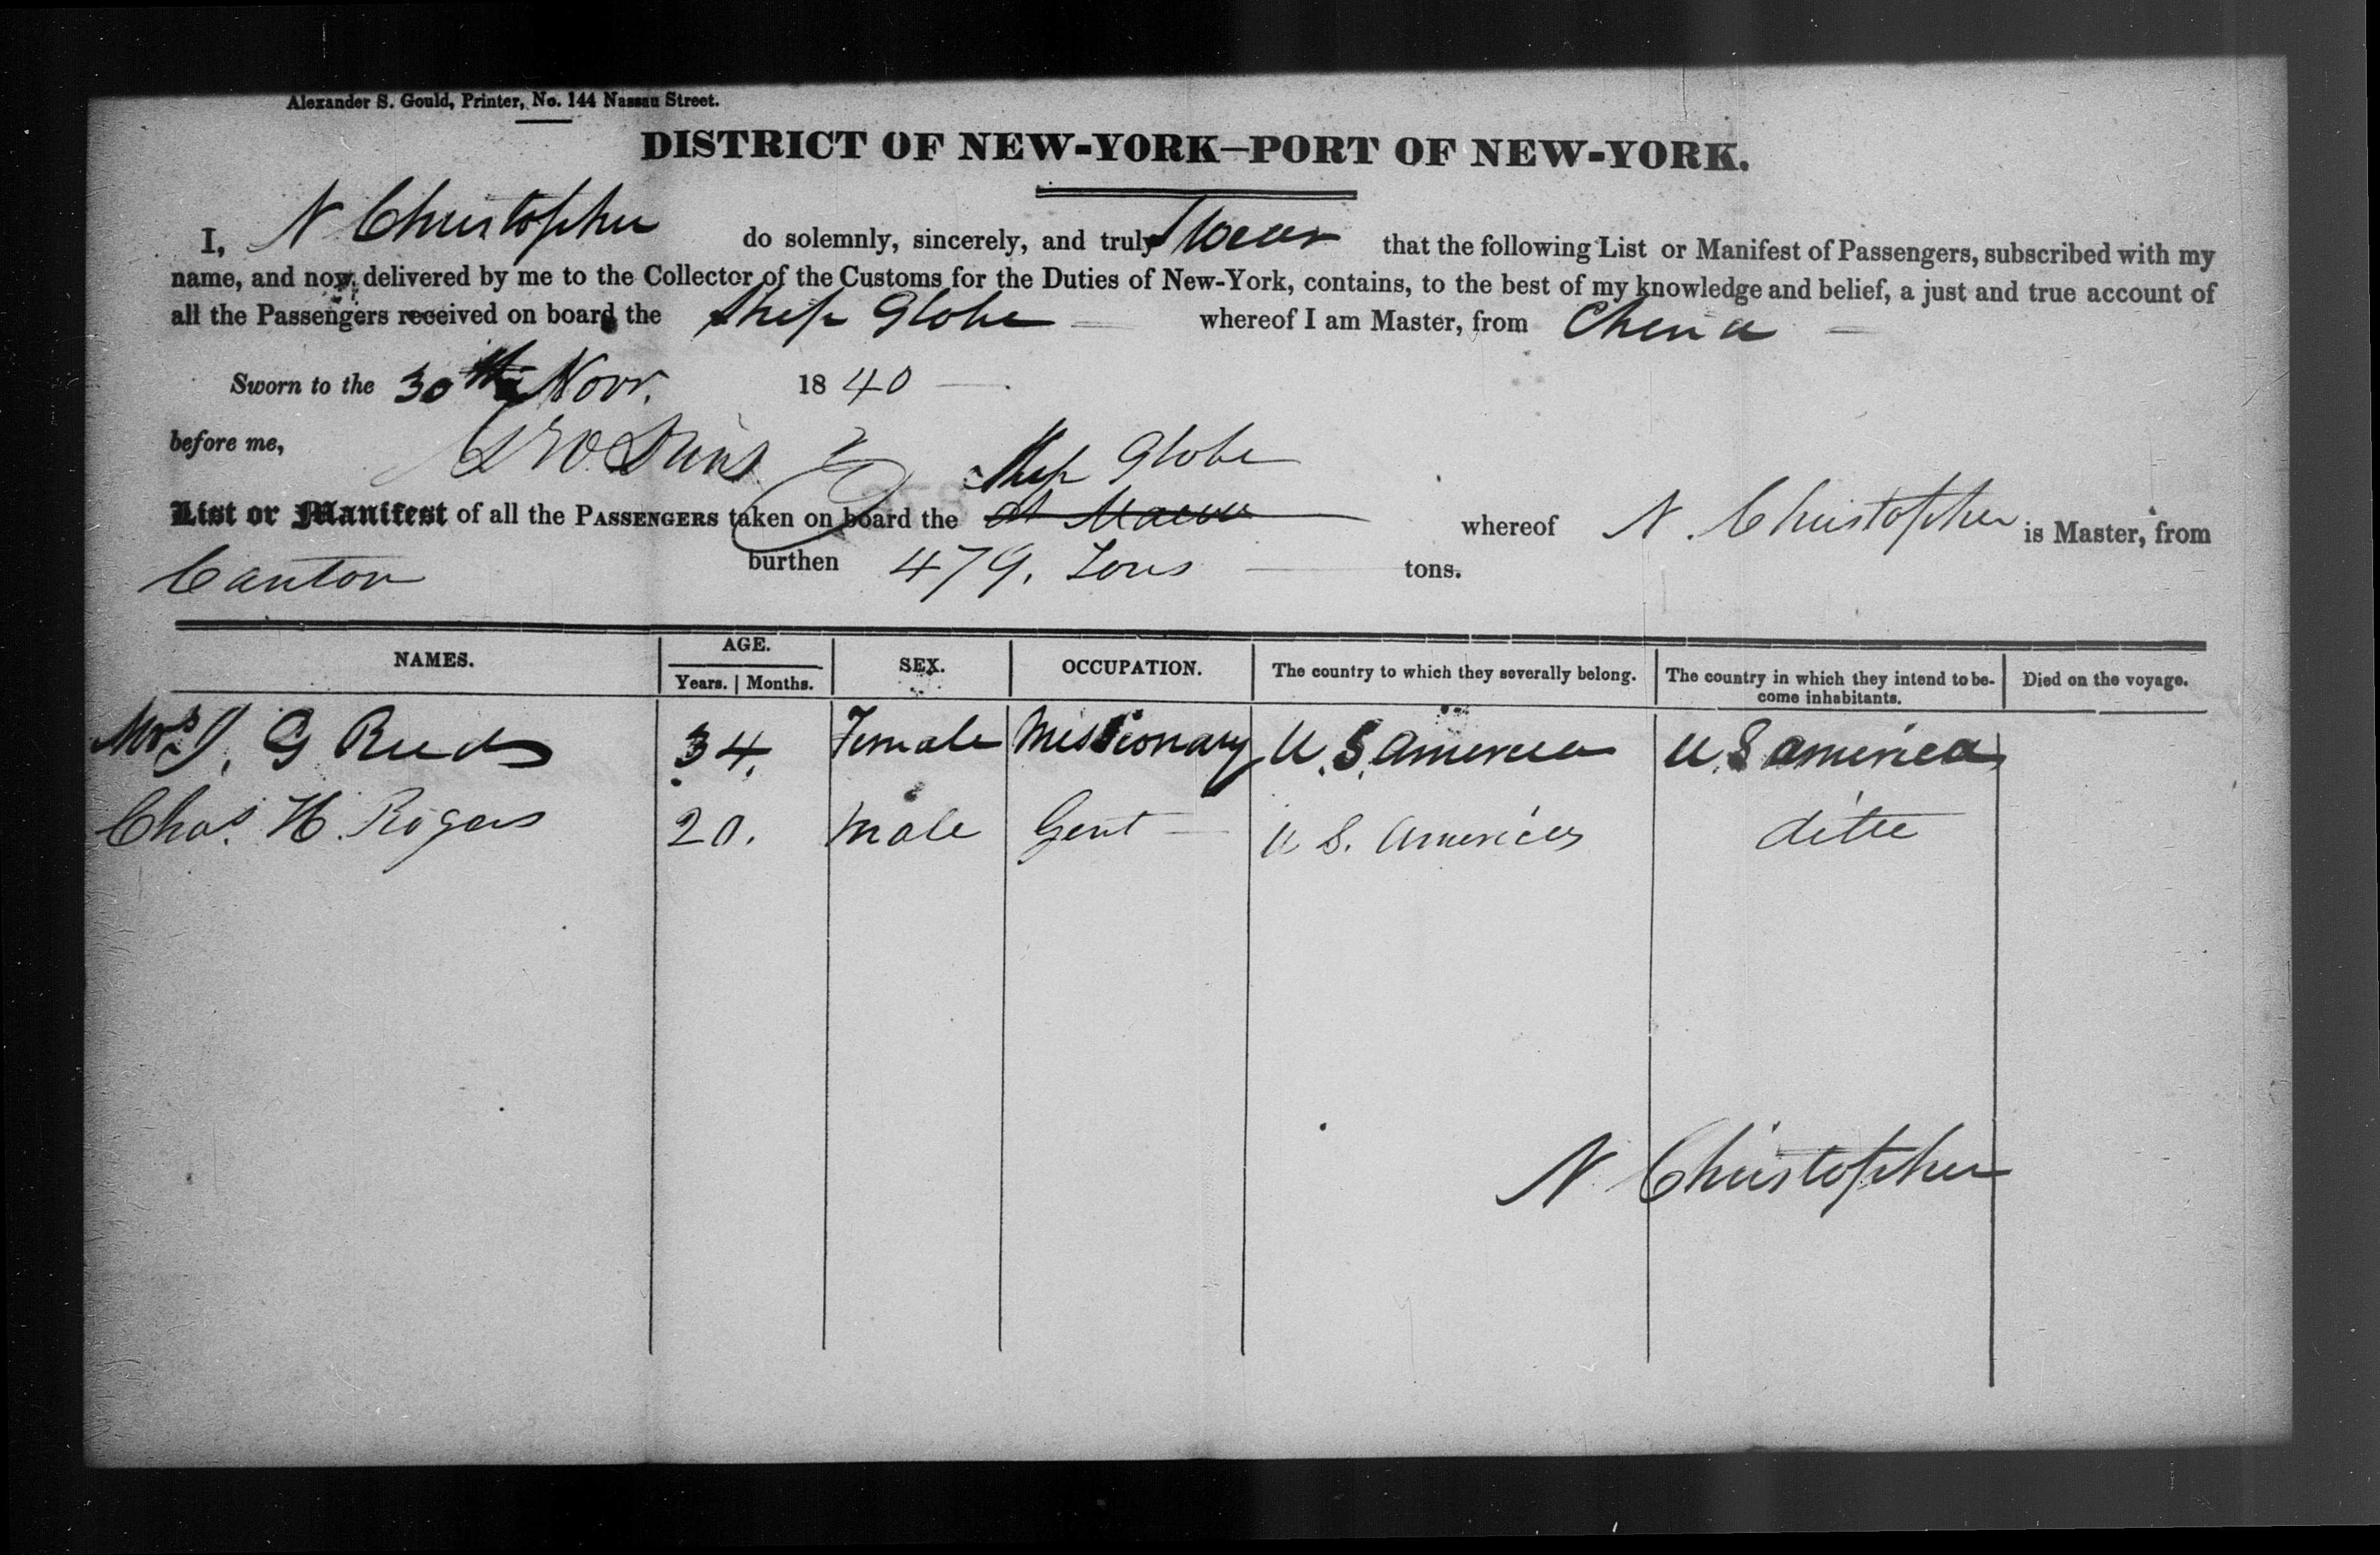 Alexander S. Gould, Printer, No. 144 Nassau Street.
DISTRICT OF NEW-YORK—PORT OF NEW-YORK.
I, N Christopher do solemnly, sincerely, and truly Swear that the following List or Manifest of Passengers, subscribed with my
name, and now delivered by me to the Collector of the Customs for the Duties of New-York, contains, to the best of my knowledge and belief, a just and true account of
all the Passengers received on board the Ship Globe whereof I am Master, from China
Sworn to the 30th Novr. 1840
before me,
Ship Globe
List or Manifest of all the PASSENGERS taken on board the at Macao whereof N. Christopher is Master, from
Canton burthen 479. Tons tons.
NAMES. AGE. Years. | Months. SEX. OCCUPATION. The country to which they severally belong. The country in which they intend to become inhabitants. Died on the voyage.
Mrs J. G Reeds 34. Female Missionary U.S. America U.S America
Chas. H. Rogers 20. Male Gent U S. America ditto
N Christopher